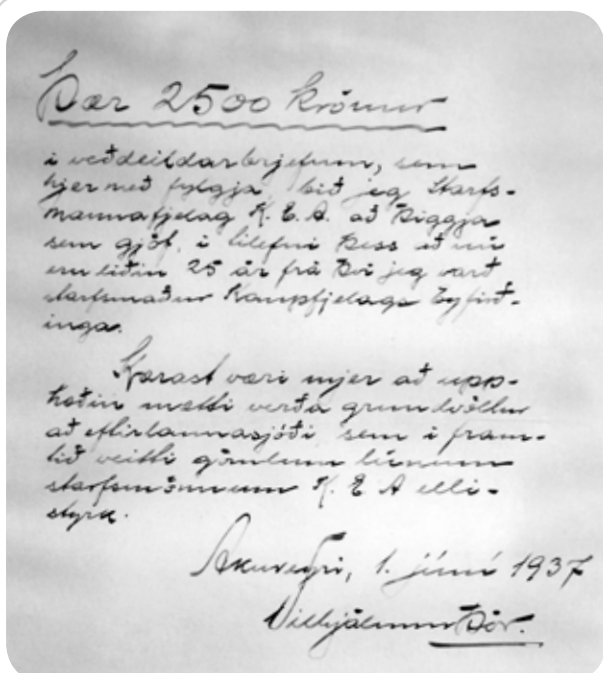 Þær 2500 krónur
í veðdeildarbrjefum, sem
hjer með fylgja bið jeg Starfs-
mannafjelag K. E. A. að þiggja
sem gjöf, í tilefni þess að nú
eru liðin 25 ár frá því jeg varð
starfsmaður Kaupfjelags Eyfirð-
inga.
Kærast væri mjer að upp-
hæðin mætti verða grundvöllur
að eftirlaunasjóði, sem í fram-
tíð veitti gömlum lúnum
starfsmönnum K. E. A elli-
styrk.
Akureyri, 1. júní 1937
Vilhjálmur Þór.